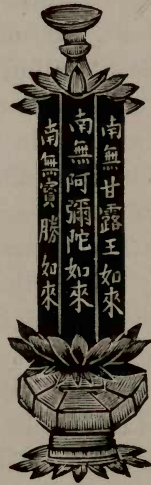 南無甘露王如來
南無阿彌陀如來
南無寳勝如來